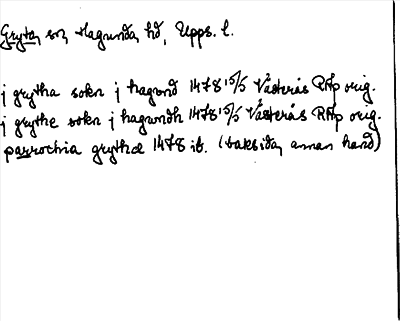 Gryta, sn, Hagunda hd, Upps. l.
j grytha sokn j hagund 1478 15/5 Västerås RAp orig.
j grythe sokn j hagundh 1478 15/5 Västerås RAp orig.
parrochia grythæ 1478 ib. (baksida, annan hand)